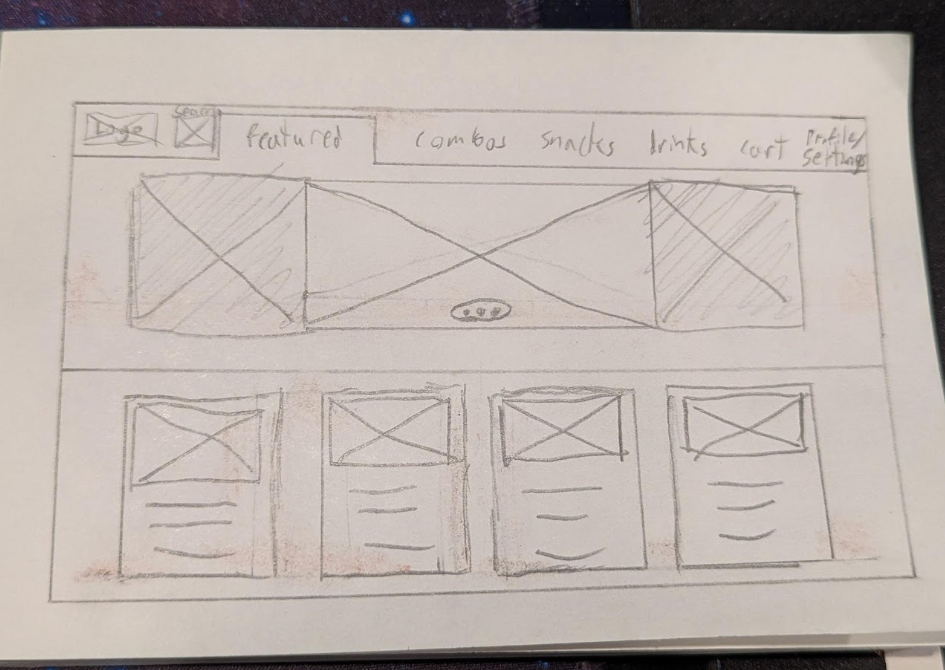 Logo
Search
featured
combos snacks drinks cart
Profile/
Settings